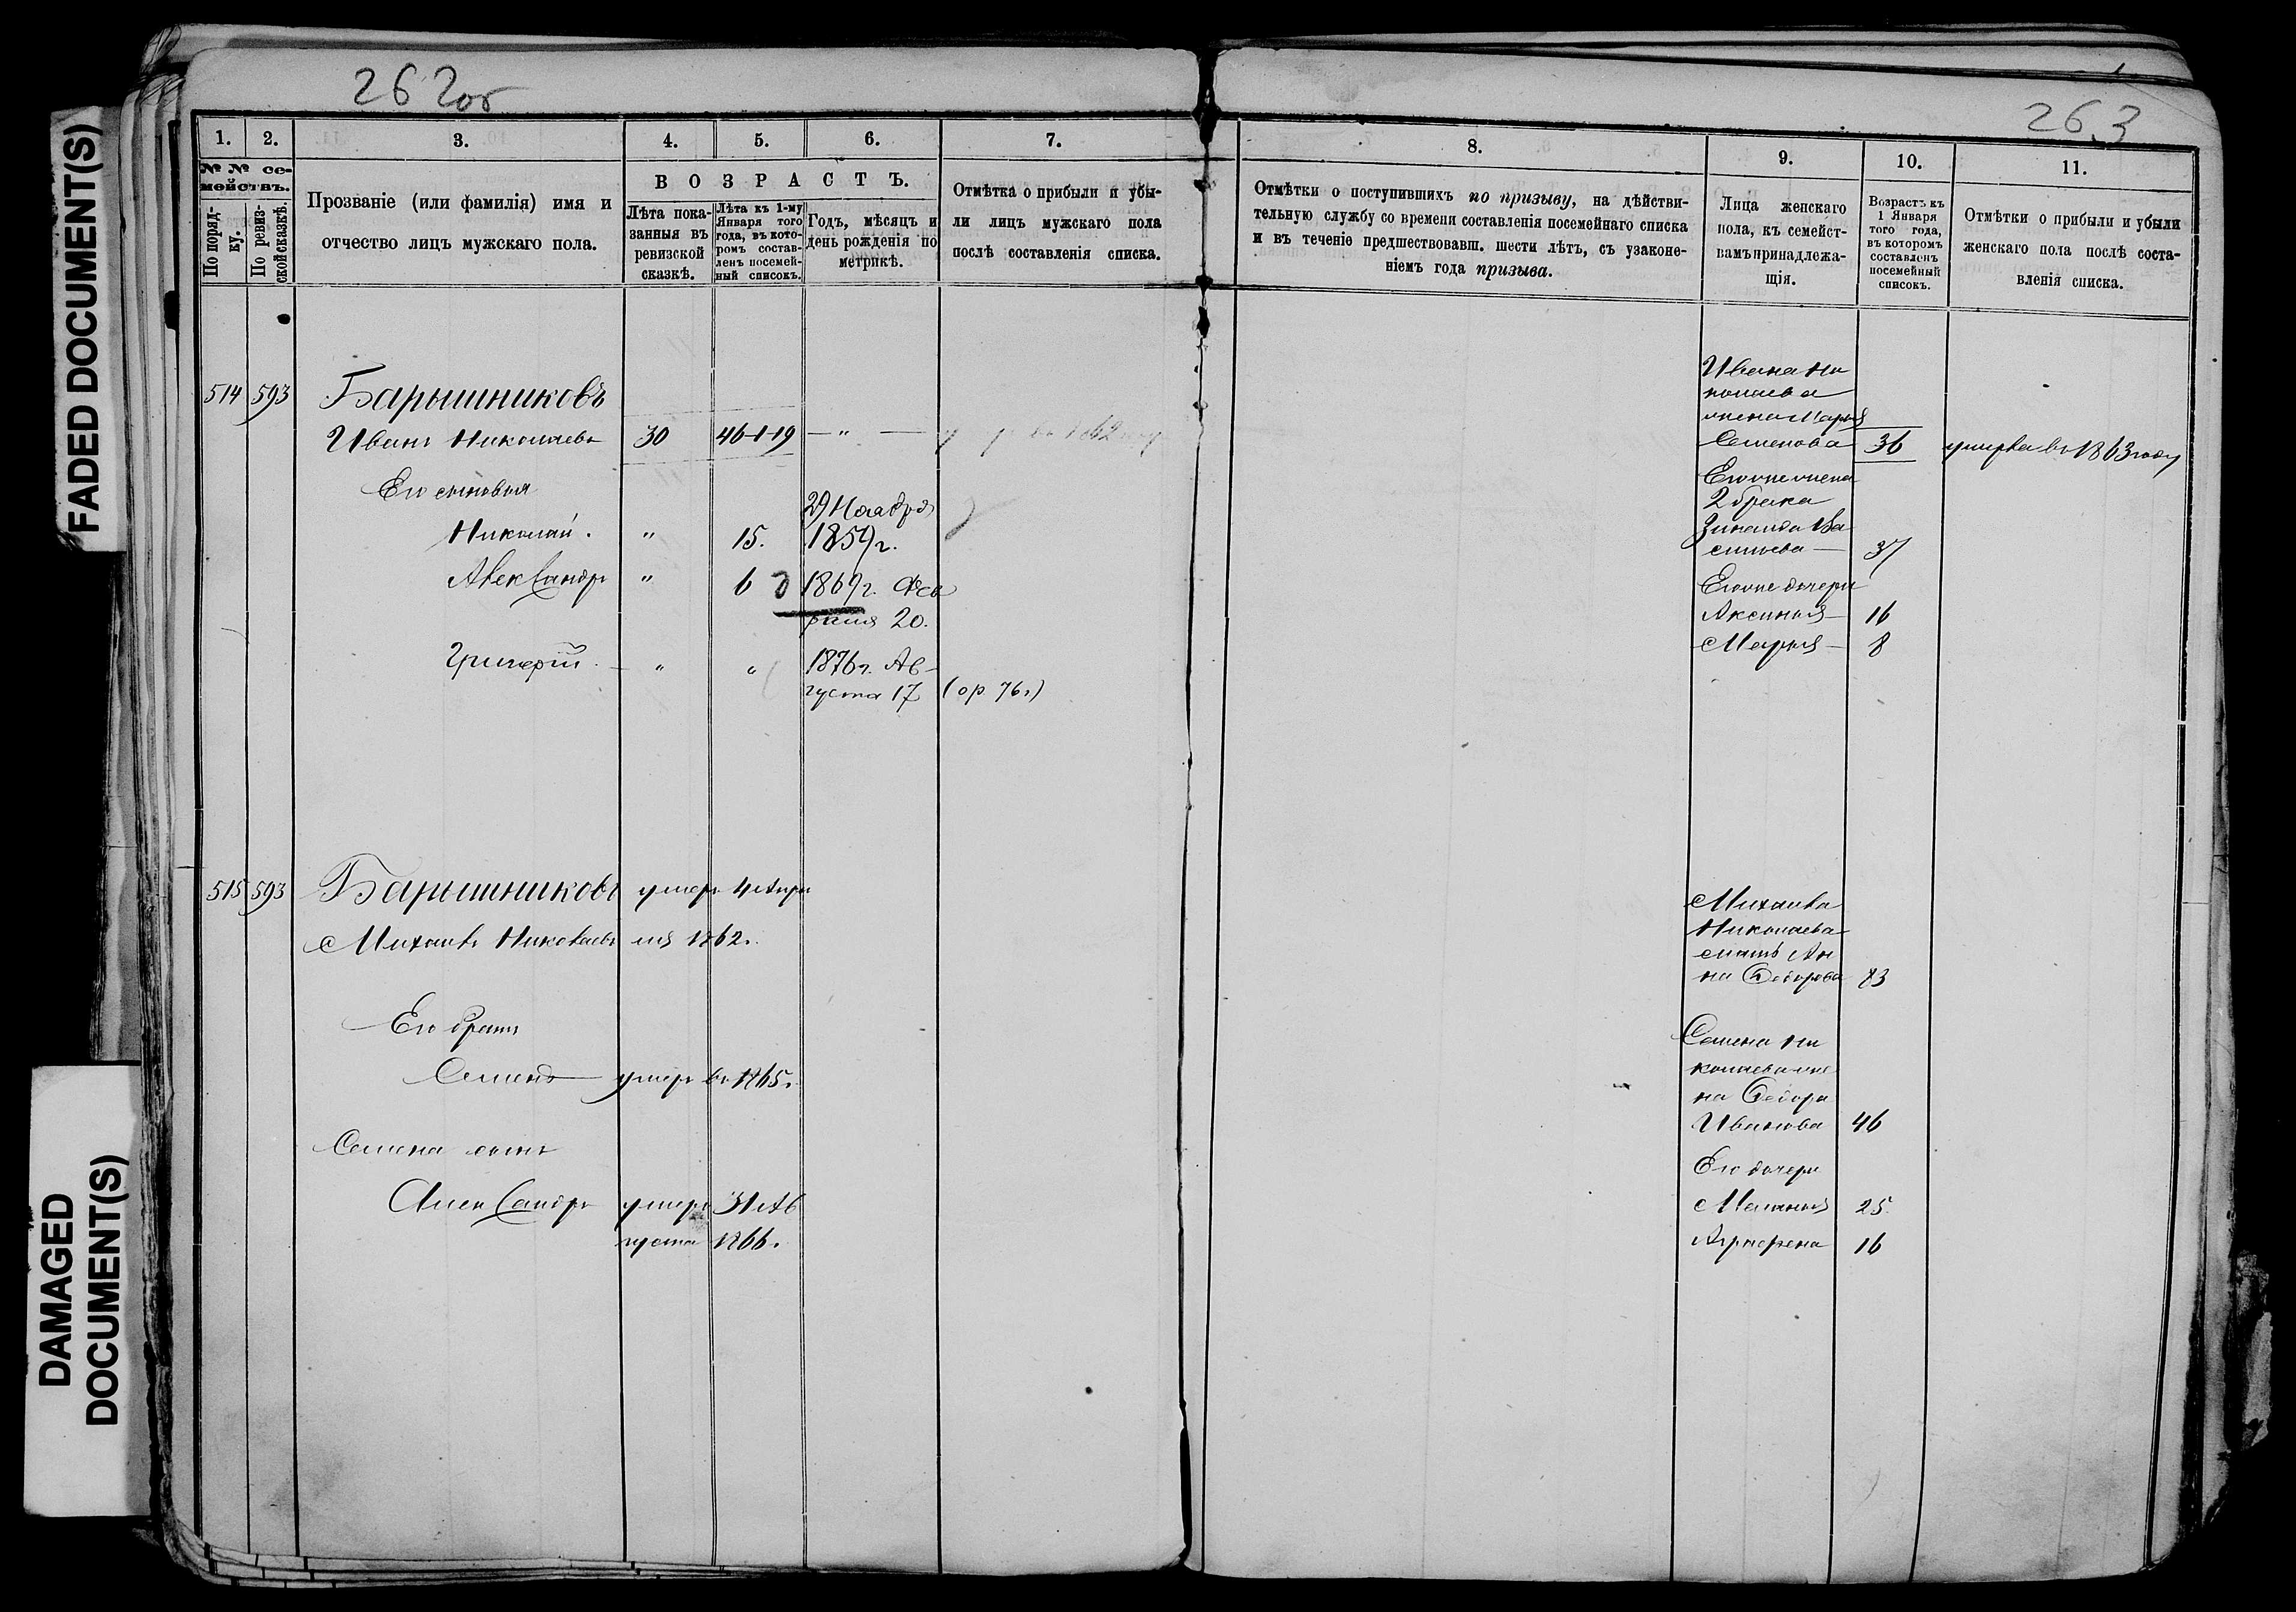 FADED DOCUMENT(S)
DAMAGED
DOCUMENT(S)
262об
1. 2. 3. 4. 5. 6. 7.
№ № се-
мействъ.
По поряд-
ку.
По ревиз-
ской сказкѣ.
Прозваніе (или фамилія) имя и
отчество лицъ мужскаго пола.
ВОЗРАСТЪ.
Лѣта пока-
занныя въ
ревизской
сказкѣ.
Лѣта къ 1-му
Января того
года, въ кото-
ромъ состав-
ленъ посемей-
ный списокъ.
Годъ, мѣсяцъ и
день рожденія по
метрикѣ.
Отмѣтка о прибыли и убы-
ли лицъ мужскаго пола
послѣ составленія списка.
514 593 Барышниковъ
Иванъ Николаевъ 30 46-1-19 — " — 1862
Его сыновья
Николай. " 15. 29 Ноября
1859 г.
Александръ " 6 1869 г. Фев
раля 20.
Григорій " " 1876 г. Ав-
густа 17 (ор 76г)
515 593 Барышниковъ умеръ 4 Апрѣ
Михаилъ Николаевъ ля 1862.
Его братъ
Семенъ умеръ въ 1865г.
Семена сынъ
Александръ умеръ 31 Ав
густа 1866.
263
8. 9. 10. 11.
Отмѣтки о поступившихъ по призыву, на дѣйстви-
тельную службу со времени составленія посемейнаго списка
и въ теченіе предшествовавш. шести лѣтъ, съ узаконе-
ніемъ года призыва.
Лица женскаго
пола, къ семейст-
вамъ принадлежа-
щія.
Возрастъ къ
1 Января
того года,
въ которомъ
составленъ
посемейный
списокъ.
Отмѣтки о прибыли и убыли
женскаго пола послѣ соста-
вленія списка.
Ивана Ни
колаева
жена Марья
Семенова 36 умерла въ 1863 году
Его же жена
2 брака
Зинаида Ва
сильева 37
Его же дочери
Аксинья 16
Марья 8
Михаила
Николаева
мать Ан
на Федорова 83
Семена Ни
колаева же
на Федора
Иванова 46
Его дочери
Маланья 25
Агрофена 16